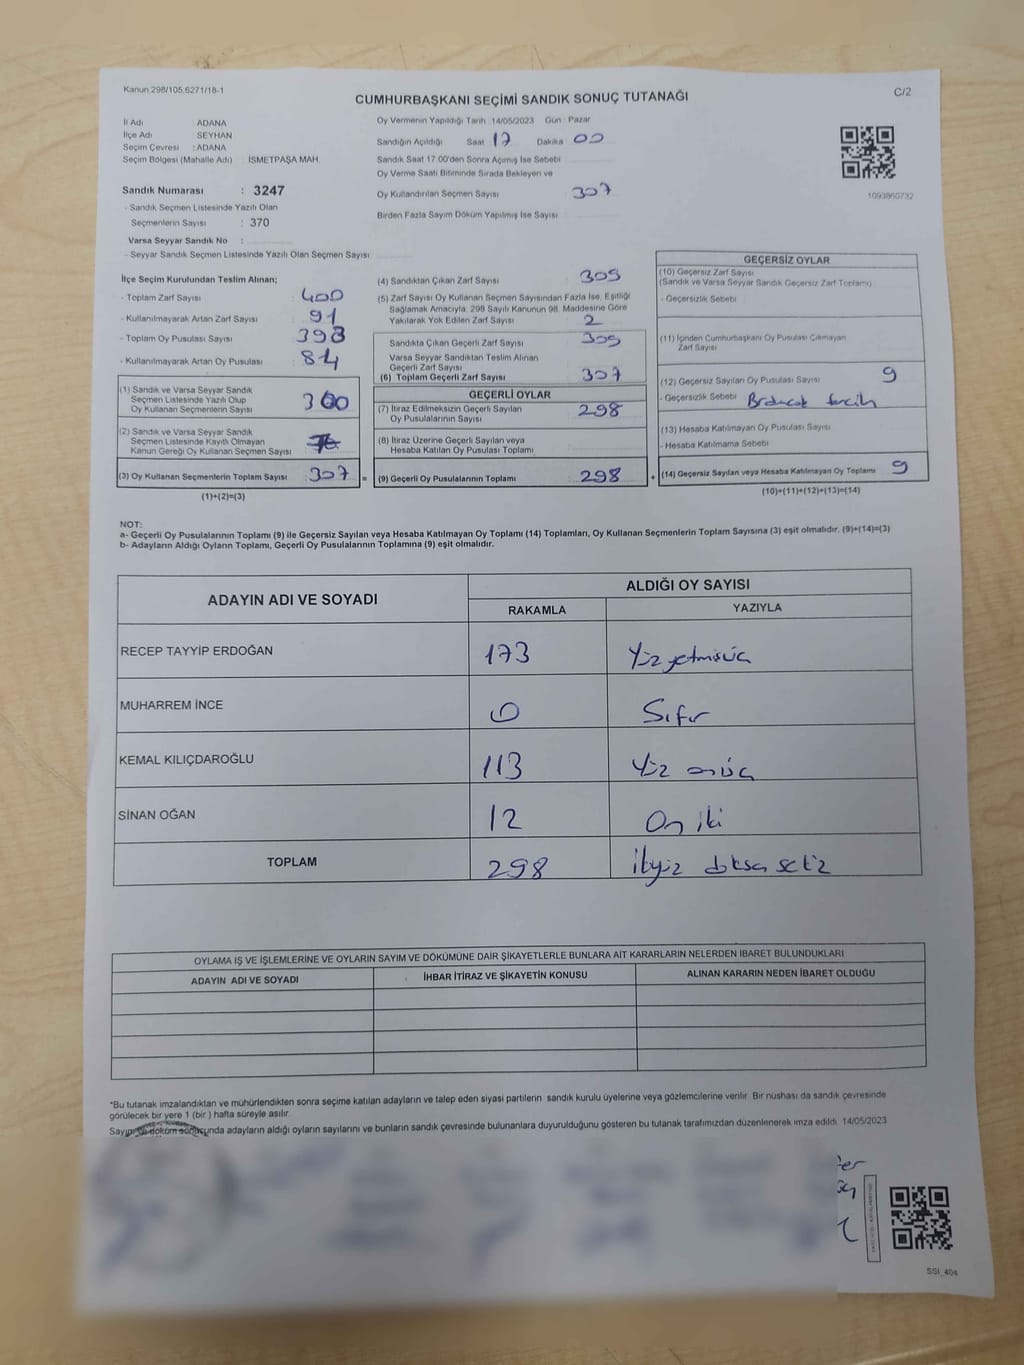 Kanun 298/105,6271/18-1
CUMHURBAŞKANI SEÇİMİ SANDIK SONUÇ TUTANAĞI
C/2
İl Adı ADANA
İlçe Adı SEYHAN
Seçim Çevresi : ADANA
Seçim Bölgesi (Mahalle Adı) : İSMETPAŞA MAH.
Sandık Numarası : 3247
- Sandık Seçmen Listesinde Yazılı Olan
Seçmenlerin Sayısı : 370
Varsa Seyyar Sandık No :
- Seyyar Sandık Seçmen Listesinde Yazılı Olan Seçmen Sayısı:
Oy Vermenin Yapıldığı Tarih 14/05/2023 Gün : Pazar
Sandığın Açıldığı Saat 17 Dakika 00
Sandık Saat 17.00'den Sonra Açımış İse Sebebi
Oy Verme Saati Bitiminde Sırada Bekleyen ve
Oy Kullandırılan Seçmen Sayısı 307
Birden Fazla Sayım Döküm Yapılmış İse Sayısı
1093860732
İlçe Seçim Kurulundan Teslim Alınan;
- Toplam Zarf Sayısı : 400
- Kullanılmayarak Artan Zarf Sayısı : 91
- Toplam Oy Pusulası Sayısı : 398
- Kullanılmayarak Artan Oy Pusulası : 84
(1) Sandık ve Varsa Seyyar Sandık
Seçmen Listesinde Yazılı Olup
Oy Kullanan Seçmenlerin Sayısı : 300
(2) Sandık ve Varsa Seyyar Sandık
Seçmen Listesinde Kayıtlı Olmayan
Kanun Gereği Oy Kullanan Seçmen Sayısı :
(3) Oy Kullanan Seçmenlerin Toplam Sayısı : 307 =
(1)+(2)=(3)
(4) Sandıktan Çıkan Zarf Sayısı : 305
(5) Zarf Sayısı Oy Kullanan Seçmen Sayısından Fazla İse, Eşitliği
Sağlamak Amacıyla, 298 Sayılı Kanunun 98. Maddesine Göre
Yakılarak Yok Edilen Zarf Sayısı : 2
Sandıkta Çıkan Geçerli Zarf Sayısı : 305
Varsa Seyyar Sandıktan Teslim Alınan
Geçerli Zarf Sayısı
(6) Toplam Geçerli Zarf Sayısı : 307
GEÇERLİ OYLAR
(7) İtiraz Edilmeksizin Geçerli Sayılan
Oy Pusulalarının Sayısı : 298
(8) İtiraz Üzerine Geçerli Sayılan veya
Hesaba Katılan Oy Pusulası Toplamı
(9) Geçerli Oy Pusulalarının Toplamı : 298 +
GEÇERSİZ OYLAR
(10) Geçersiz Zarf Sayısı
(Sandık ve Varsa Seyyar Sandık Geçersiz Zarf Toplamı)
- Geçersizlik Sebebi
(11) İçinden Cumhurbaşkanı Oy Pusulası Çıkmayan
Zarf Sayısı
(12) Geçersiz Sayılan Oy Pusulası Sayısı : 9
- Geçersizlik Sebebi
(13) Hesaba Katılmayan Oy Pusulası Sayısı
- Hesaba Katılmama Sebebi
(14) Geçersiz Sayılan veya Hesaba Katılmayan Oy Toplamı : 9
(10)+(11)+(12)+(13)=(14)
NOT:
a- Geçerli Oy Pusulalarının Toplamı (9) ile Geçersiz Sayılan veya Hesaba Katılmayan Oy Toplamı (14) Toplamları, Oy Kullanan Seçmenlerin Toplam Sayısına (3) eşit olmalıdır. (9)+(14)=(3)
b- Adayların Aldığı Oyların Toplamı, Geçerli Oy Pusulalarının Toplamına (9) eşit olmalıdır.
ADAYIN ADI VE SOYADI ALDIĞI OY SAYISI
RAKAMLA YAZIYLA
RECEP TAYYİP ERDOĞAN 173 Yüz yetmişüç
MUHARREM İNCE 0 Sıfır
KEMAL KILIÇDAROĞLU 113 Yüz onüç
SİNAN OĞAN 12 On iki
TOPLAM 298 ikiyüz doksan sekiz
OYLAMA İŞ VE İŞLEMLERİNE VE OYLARIN SAYIM VE DÖKÜMÜNE DAİR ŞİKAYETLERLE BUNLARA AİT KARARLARIN NELERDEN İBARET BULUNDUKLARI
ADAYIN ADI VE SOYADI İHBAR İTİRAZ VE ŞİKAYETİN KONUSU ALINAN KARARIN NEDEN İBARET OLDUĞU
*Bu tutanak imzalandıktan ve mühürlendikten sonra seçime katılan adayların ve talep eden siyasi partilerin sandık kurulu üyelerine veya gözlemcilerine verilir. Bir nüshası da sandık çevresinde
görülecek bir yere 1 (bir ) hafta süreyle asılır.
Sayım ve döküm sonucunda adayların aldığı oyların sayılarını ve bunların sandık çevresinde bulunanlara duyurulduğunu gösteren bu tutanak tarafımızdan düzenlenerek imza edildi. 14/05/2023
SSI_404